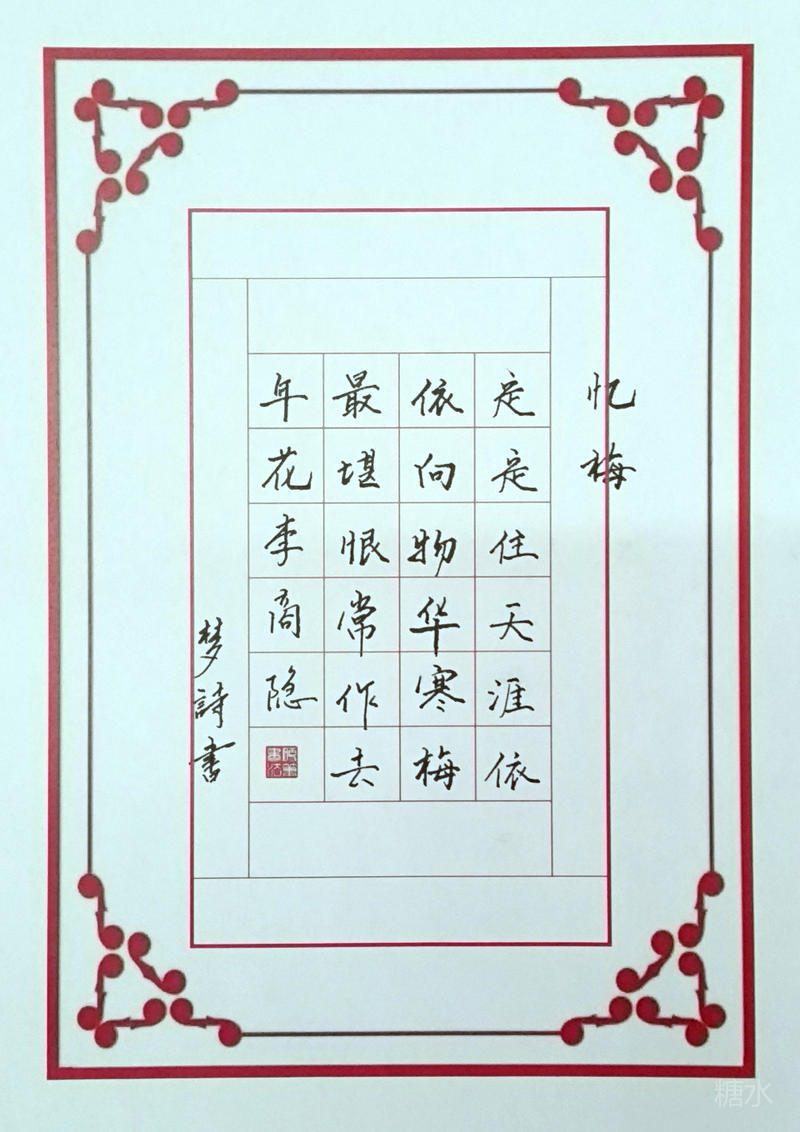 忆梅
定定住天涯依
依向物华寒梅
最堪恨常作去
年花李商隐
梦詩書
硬筆書法
糖水